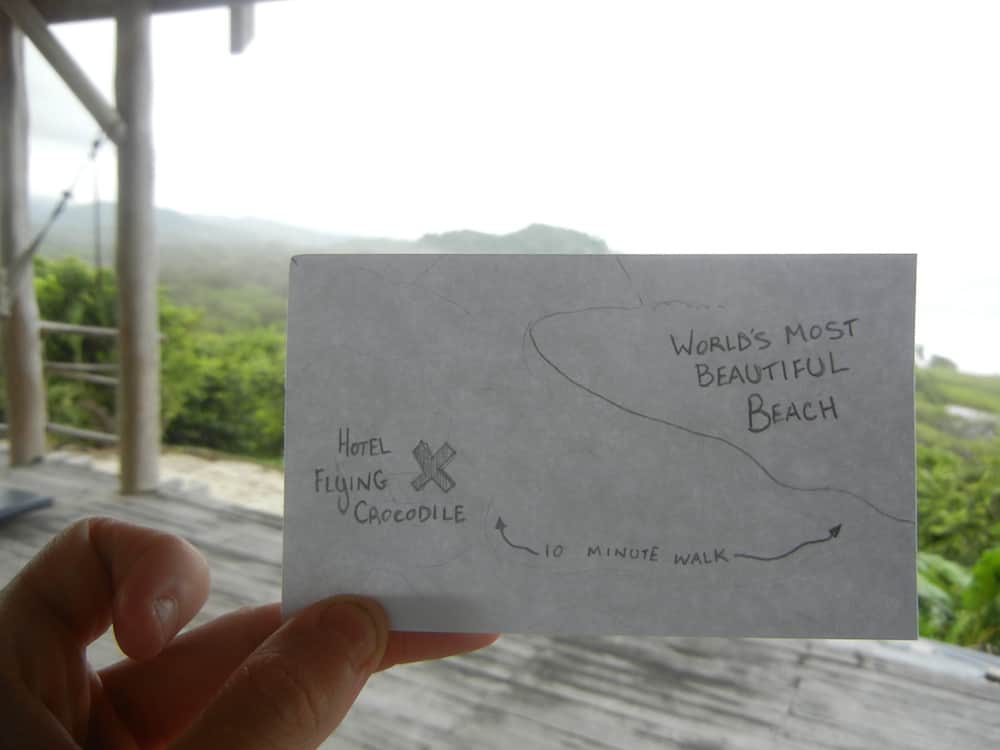 WORLD'S MOST
BEAUTIFUL
BEACH
HOTEL
FLYING
CROCODILE
10 MINUTE WALK